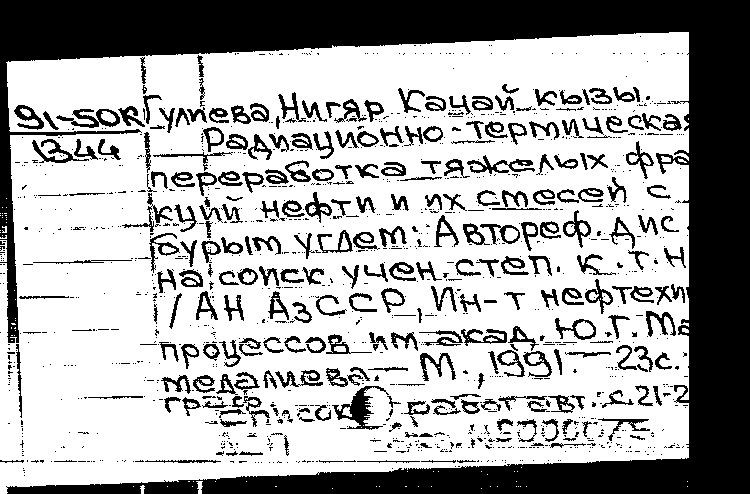 91-50R Гулиева, Нигяр Качай кызы.
1344 Радиационно-термическая
переработка тяжелых фра
кций нефти и их смесей с
бурым углем: Автореф. дис.
на соиск. учен. степ. к.т.н
/ АН АзССР, Ин-т нефтехим
процессов им. акад. Ю.Г. Ма
медалиева. — М., 1991. — 23с.:
граф.
Список работ авт.: с.21-2